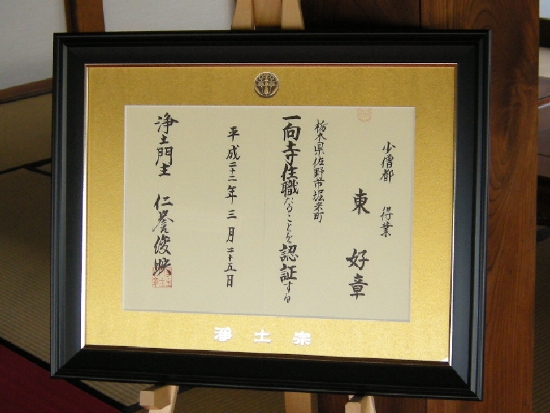 少僧都 得業
東 好章
栃木県佐野市堀米町
一向寺住職なることを認証する
平成二十二年三月二十五日
浄土門主 仁誉俊映
浄土宗